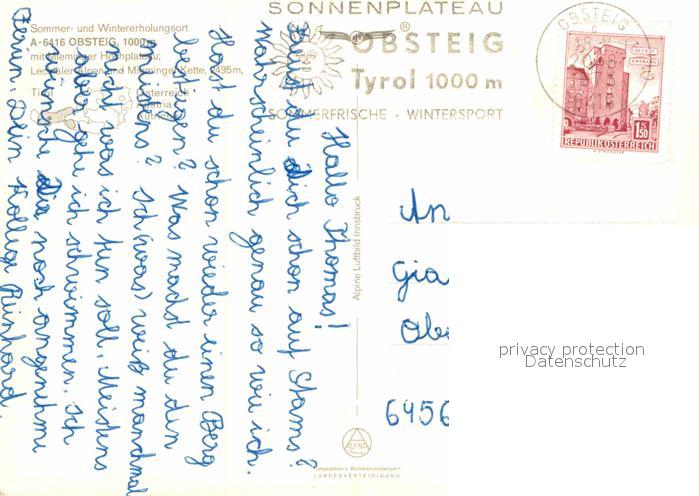 Sommer- und Wintererholungsort
A-6416 OBSTEIG, 1000 m
mit Mieminger Hochplateau;
Lechtaler Alpen und Mieminger Kette, 2495m,
Tirol
Österreich
Austria
Autriche
SONNENPLATEAU
OBSTEIG
Tyrol 1000 m
SOMMERFRISCHE · WINTERSPORT
OBSTEIG
1.50
REPUBLIK ÖSTERREICH
Hallo Thomas!
Freust du dich schon auf Stams?
Wahrscheinlich genau so wie ich.
Hast du schon wieder einen Berg
bestiegen? Was machst du den
meistens? Ich (was) weiß manchmal
nicht was ich tun soll. Meistens
aber gehe ich schwimmen. Ich
wünsche dir noch angenehme
Ferien. Dein Kollege Reinhard
Alpine Luftbild Innsbruck
An
Gia
Obe
6456
ALPINE
LANDESVERTEIDIGUNG
privacy protection
Datenschutz